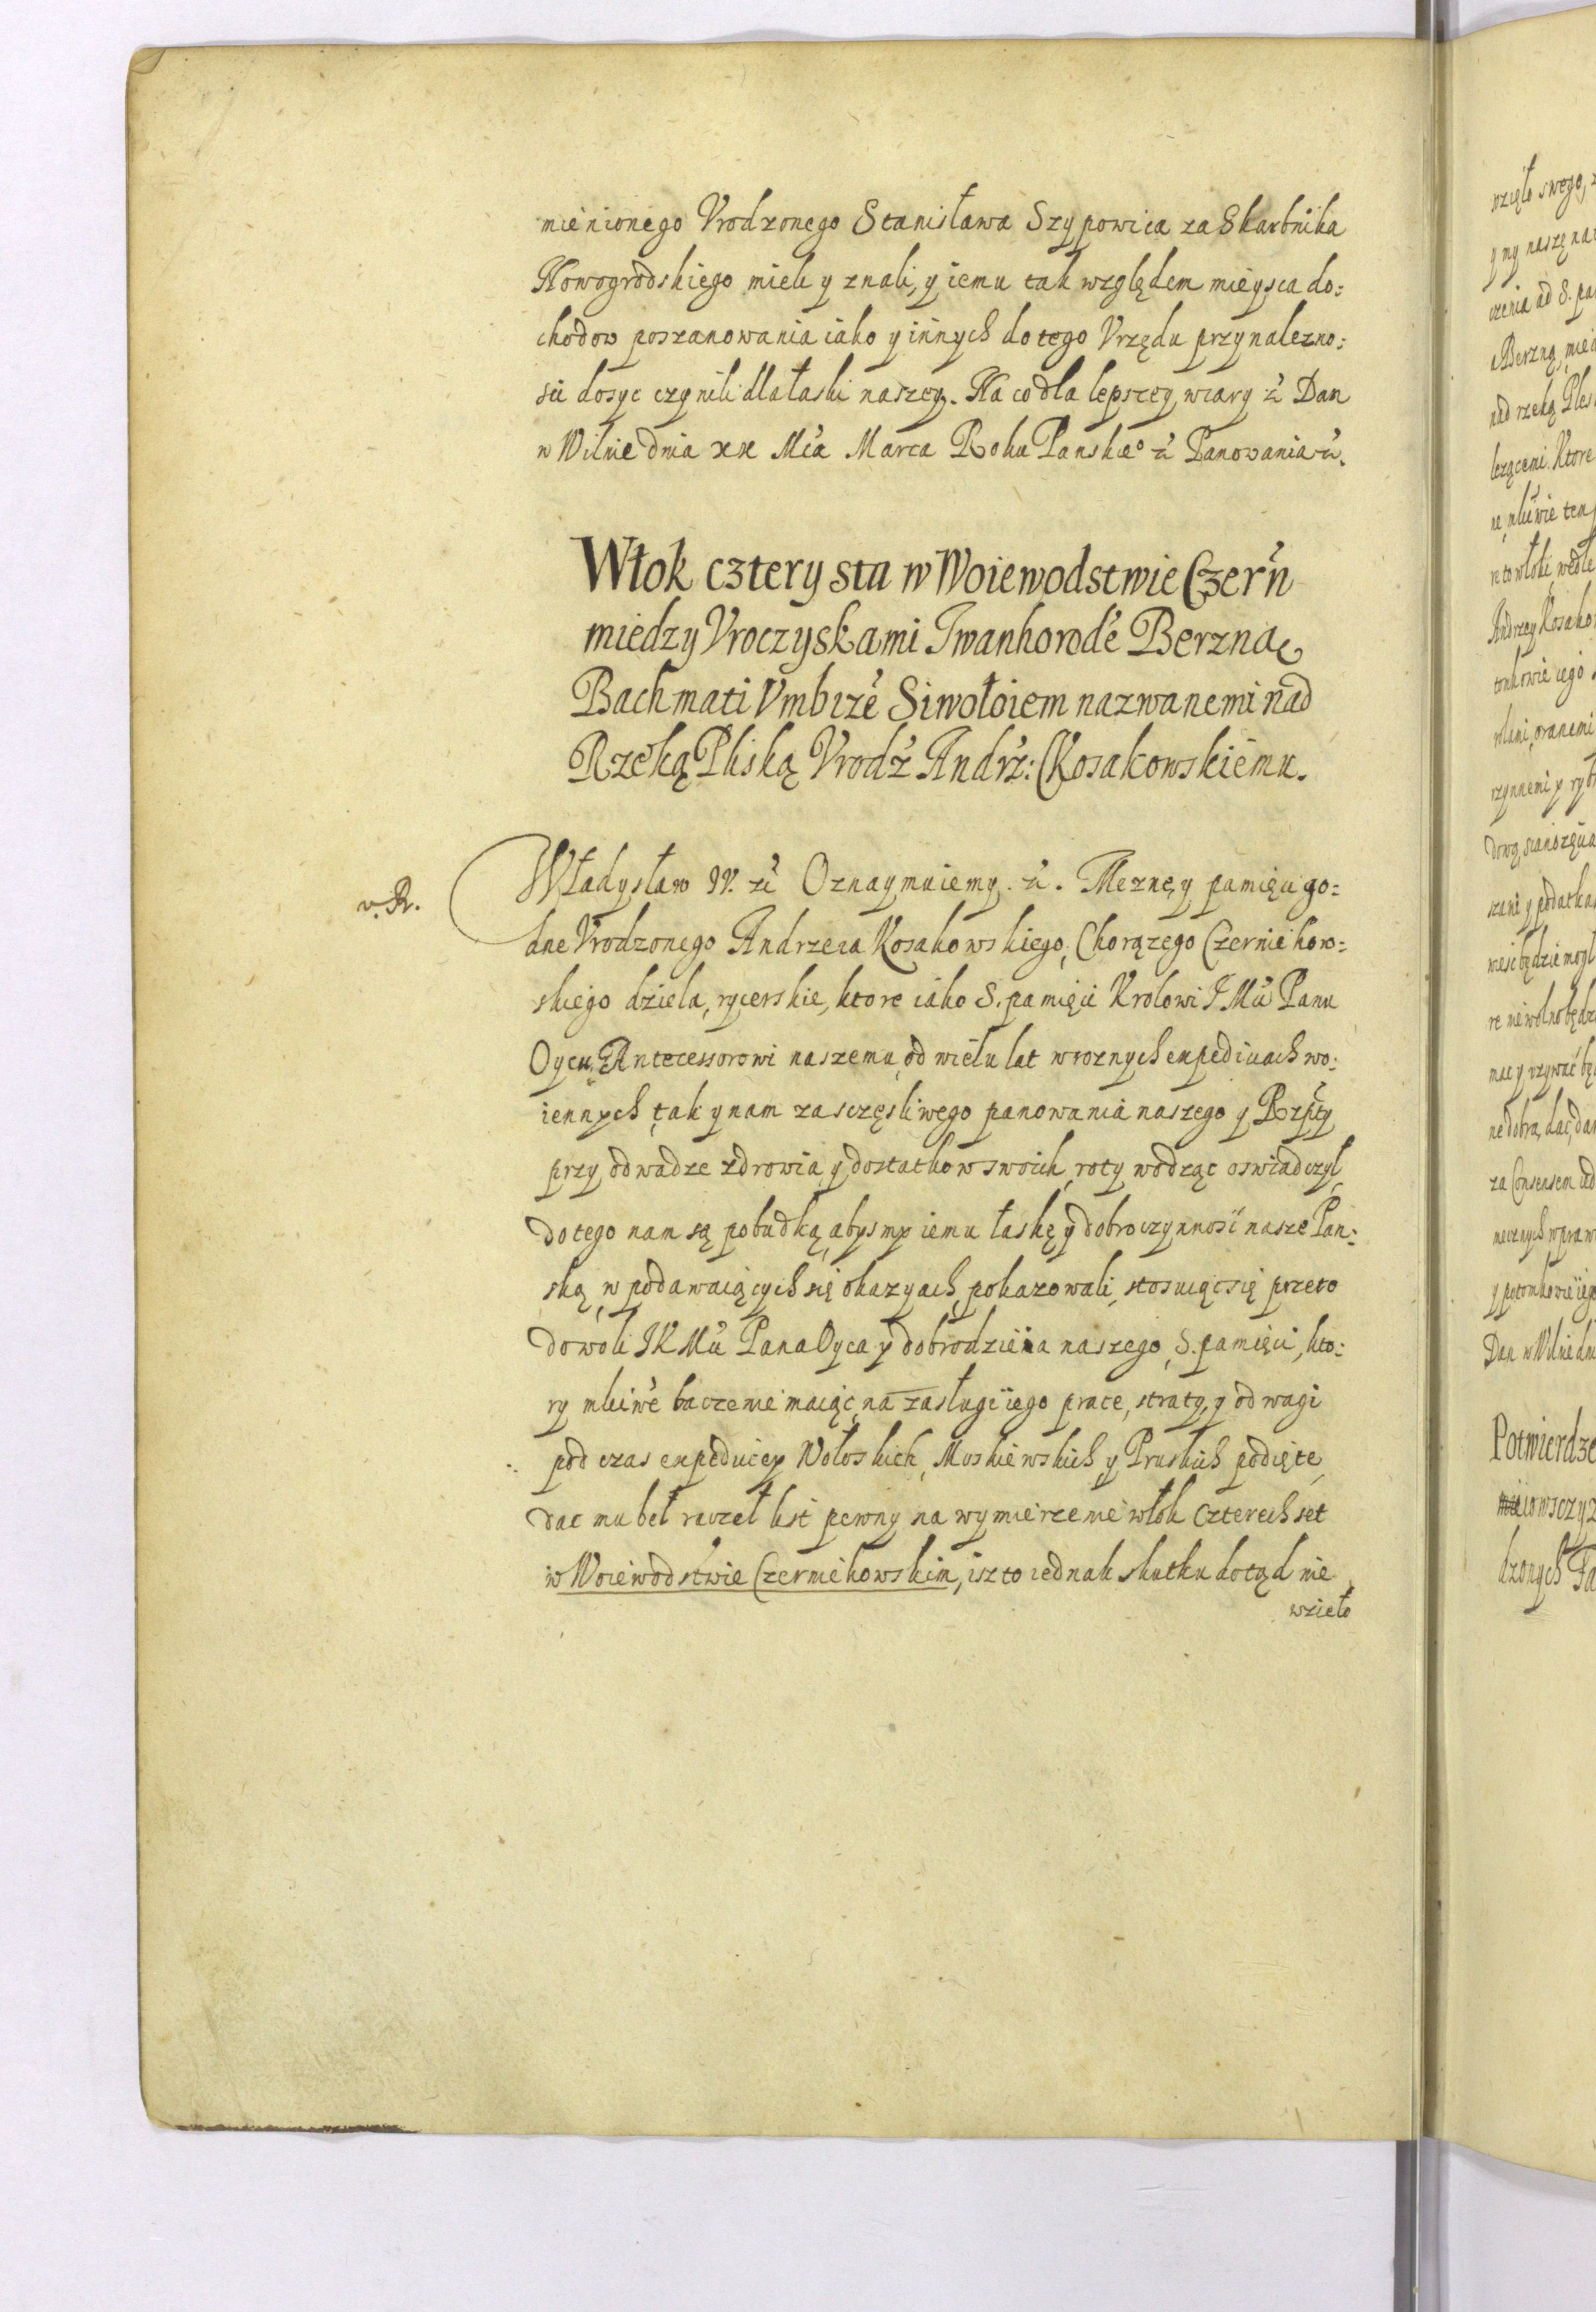 mienionego Vrodzonego Stanisława Szypowica za Skarbnika
Nowogrodskiego mieli y znali, y iemu tak względem mieysca do:
chodow poszanowania iako y innych do tego Vrzędu przynalezno:
sci dosyc czynili dla łaski naszey. Na co dla lepszey wiary ź Dan
w Wilnie dnia xx Mca Marca Roku Panskieo ź Panowania ź.
Włok cztery sta w Woiewodstwie Czern
miedzy Vroczyskami Iwanhorode Berzną
Bachmati Vmbize Siwołoiem nazwanemi nad
Rzeką Pliską Vrodz Andrz: Kosakowskiemu.
v. R.
Władysław IV. ź Oznaymuiemy. ź. Mezne, y pamięci go:
dne Vrodzonego Andrzeia Kosakowskiego, Chorązego Czerniehow:
skiego dziela, rycerskie, ktore iako S. pamięci Krolowi J Mci Panu
Oycu, y Antecessorowi naszemu, od wielu lat w roznych expediciach wo:
iennych, tak y nam za sczęsliwego panowania naszego y Rzpty
przy odwadze zdrowia, y dostatkow swoich, roty wodząc oswiadczył,
do tego nam są pobudką, abysmy iemu łaskę y dobroczynnosc nasze Pan:
ską, w podawaiących się okazyach, pokazowali, stosuiąc się przeto
do woli J K Mci Pana Oyca y dobrodzieia naszego, S. pamięci, kto:
ry mlciwe baczenie maiąc, na zasługi iego prace, straty, y odwagi
pod czas expediciey Wołoskich, Moskiewskich y Pruskich podięte,
dac mu beł raczeł list pewny na wymierzenie włok czterech set
w Woiewodstwie Czerniehowskim, isz to iednak skutku dotąd nie
wzieło
wzięło swego,
czenia od S.
Berzną,
nad rzeką
lezącemi. Ktore
Andrzey
dową
Dan w Wilnie
Potwierdze
dzonych